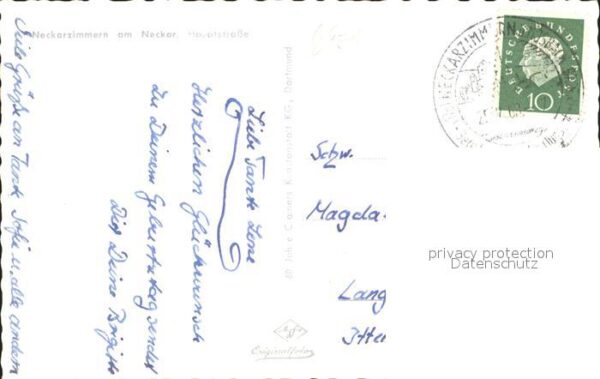 Neckarzimmern am Neckar, Hauptstraße
Liebe Tante Lone
Herzlichen Glückwunsch
zu Deinem Geburtstag sendet
Dir Deine Brigitte
Viele Grüße an Tante Sofie u. alle andern
60 Jahre Cramers Kunstanstalt KG., Dortmund
Agfa
Originalfoto
Schw.
Magda
Lang
DEUTSCHE BUNDESPOST
10
NECKARZIMMERN
privacy protection
Datenschutz